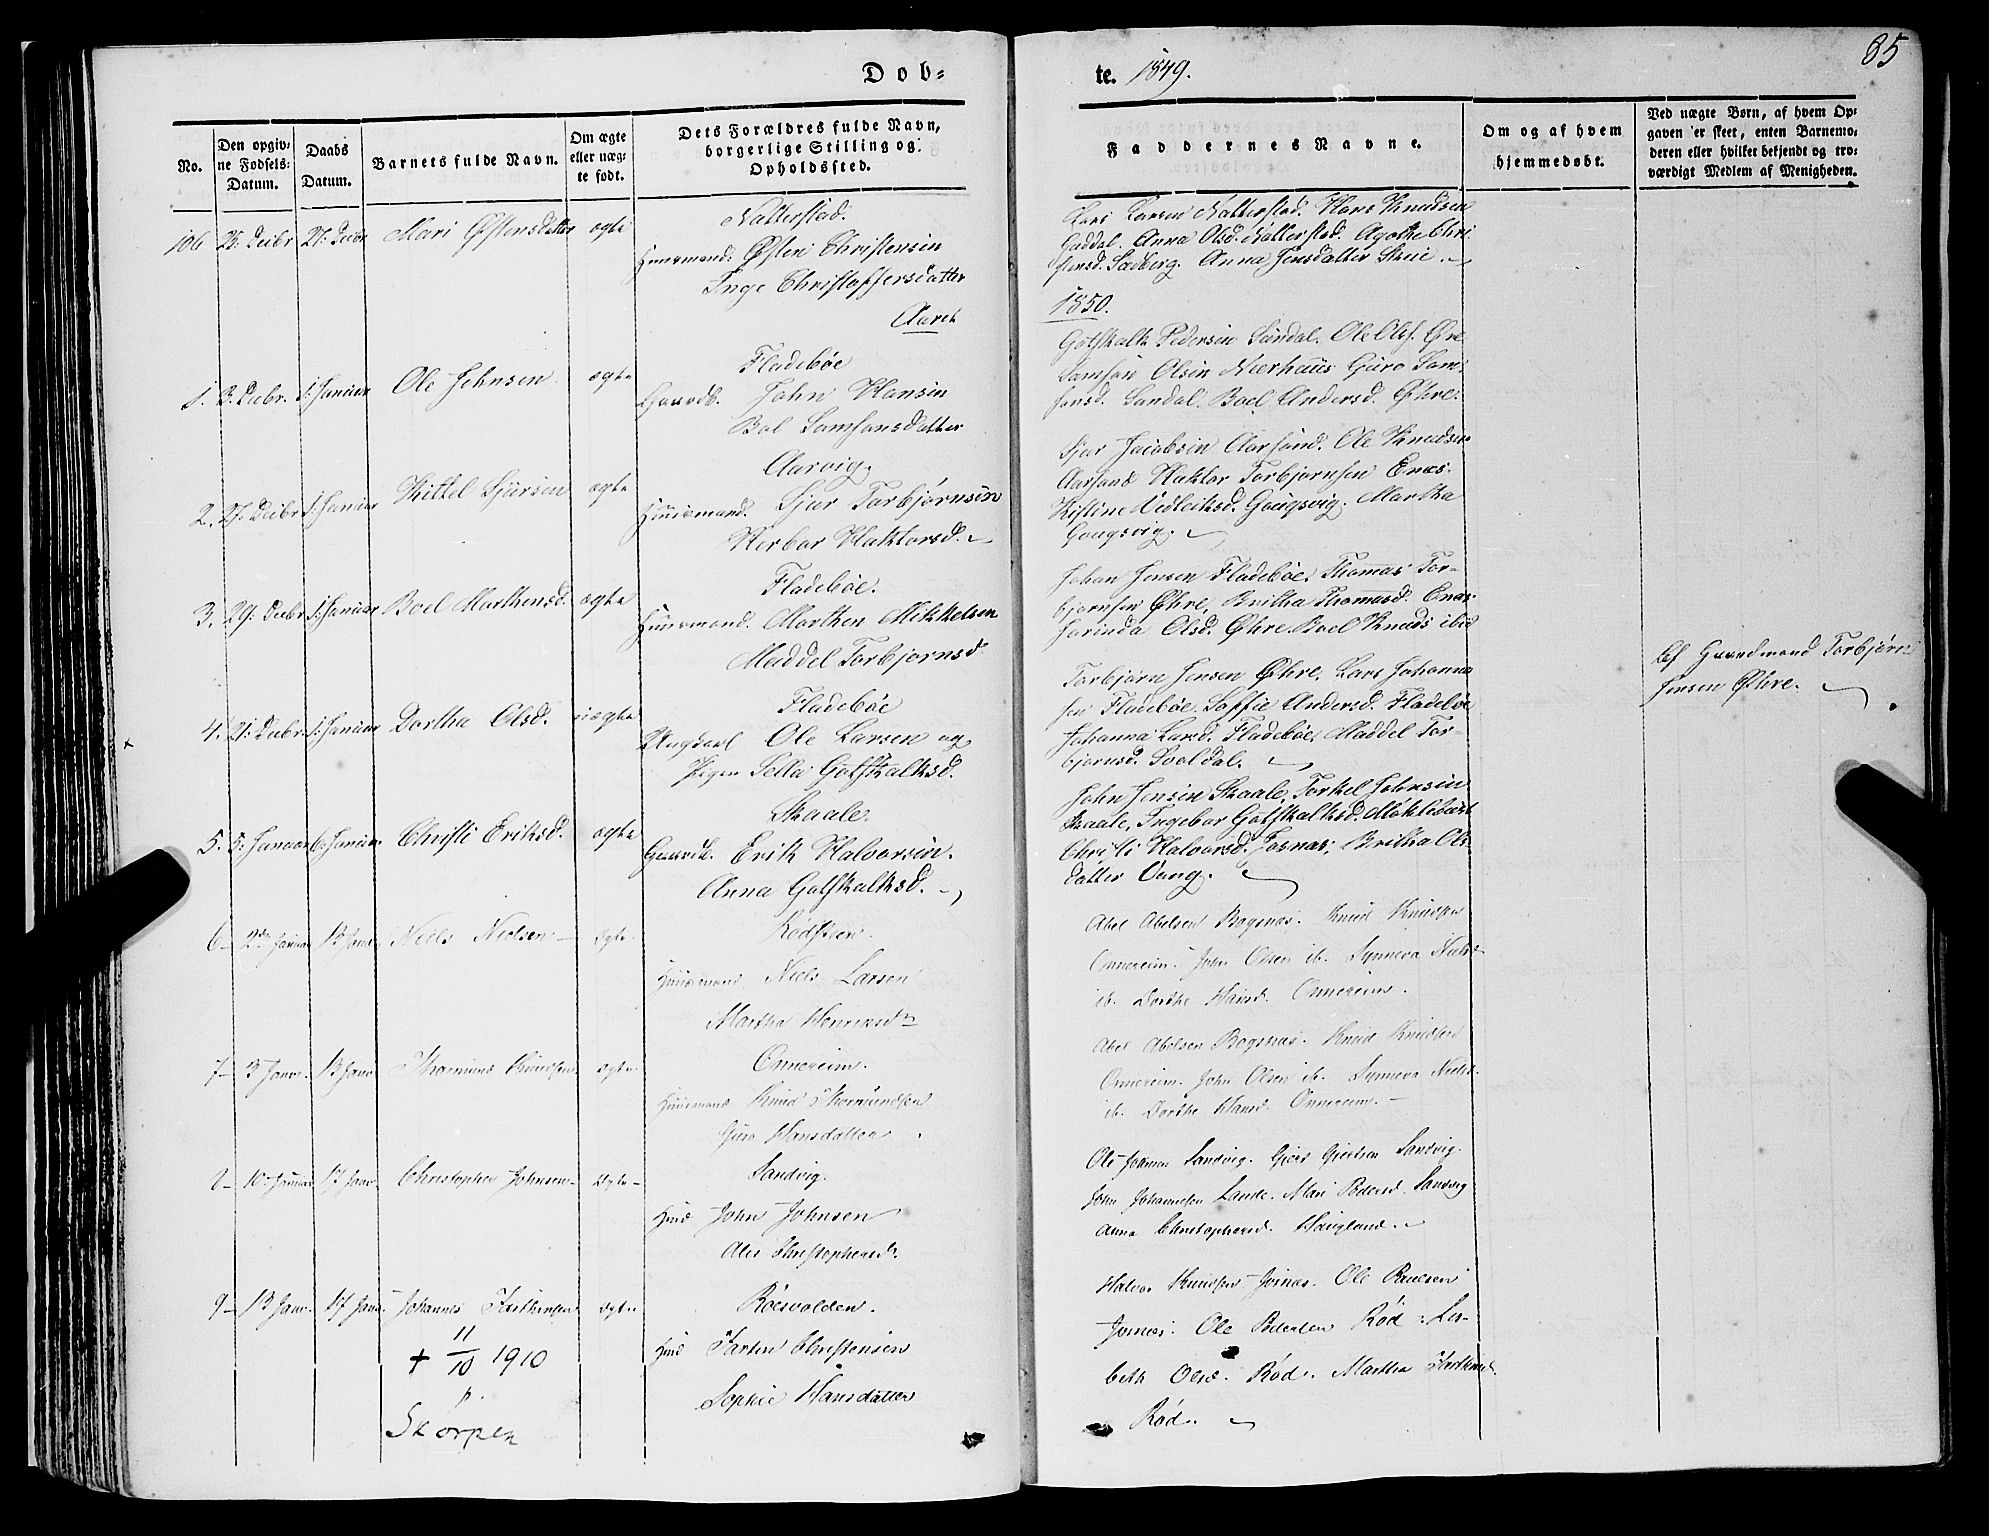 85
Dob-
te. 1849.
No.
Den opgiv-
ne Fødsels-
Datum.
Daabs
Datum.
Barnets fulde Navn.
Om ægte
eller uæg-
te født.
Dets Forældres fulde Navn,
borgerlige Stilling og
Opholdssted.
Faddernes Navne.
Om og af hvem
hjemmedøbt.
Ved uægte Børn, af hvem Op-
gaven er skeet, enten Barnemo-
deren eller hvilket bekjendt og tro-
værdigt Medlem af Menigheden.
106 Decbr Mari Østensdatter ægte
Natterstad.
Huusmand. Østen Christensen
Inge Christophersdatter
Lars Larsen Natterstad. Hans Knudsen
Gaddal. Anna Olsd. Natterstad. Agothe Chri
stensd. Sæberg. Anna Jensdatter Skeie.
Aaret
1850.
1. 3. Decbr. 1. Januar Ole Johnsen ægte
Fladebøe
Gaardb. John Hansen
Bol Samsonsdatter
Gotskalk Pedersen Sundal. Ole Ols. Øhre
Samson Olsen Nierhuus Guro Sam-
sonsd. Sandal. Boel Andersd. Øhre.
2. 27. Decbr 1. Januar Kittel Sjursen ægte
Aarvig.
Huusmand. Sjur Torbjørnsen
Herbor Haktorsd.
Sjur Jacobsen Aarsand. Ole Knudsen
Aarsand Haktor Torbjørnsen Enæs.
Kistine Vidleiksd. Gougsvig. Martha
Gougsvig.
3. 29. Decbr 1. Januar Boel Marthensd. ægte
Fladebøe.
Huusmand. Marthen Mikkelsen
Maddel Torbjørnsd
Johan Jensen Fladebøe. Thomas Tor-
bjørnsen Øhre, Britha Thomasd. Enæs
Olsd. Øhre. Boel Knuds ibid
4. 21. Decbr. 1. Januar Dortha Olsd. uægte
Fladebøe
Ungkarl Ole Larsen og
Pigen Sella Gotskalksd.
Torbjørn Jensen Øhre. Lars Johanne
sen Fladebøe. Soffie Andersd. Fladebøe
Johanna Larsd. Fladebøe. Maddel Tor-
bjørnsd. Soeldal.
Af Gaardmand Torbjørn
Jensen Øhre.
5. 5. Januar 6. Januar Christi Eriksd. ægte
Skaale.
Gaardb. Erik Halvorsen.
Anna Gotskalksd.
John Jensen Skaale, Torkel Johnsen
Skaale, Ingebor Gotskalksd. Møklebust
Christi Halvorsd. Josnæs, Britha Ols
datter Vang.
6 - 2den Januar 13 Janr Niels Nielsen - ægte
Rødsteen.
Huusmand Niels Larsen
Martha Henriksdr
Abel Abelsen Bogsnæs. Knud Knudsen
Onnereim. John Olsen ib. Synneva Nielsd.
ib. Dorthe Hansd. Onnereim.
7 - 3 Janr. 13 Janr Knudsen ægte
Onnereim.
Huusmand Knud
Guro Hansdatter
Abel Abelsen Bogsnæs. Knud Knudsen
Onnereim. John Olsen ib. Synneva Nielsd.
ib. Dorthe Hansd. Onnereim.
8 - 10 Januar 17 Janr. Christopher Johnsen - ægte -
Sandvig.
Huus John Johnsen
Christophersdr.
Ole Sandvig. Sandvig.
John Johannesen Lande. Mari Pedersd. Sandvig
Anna Christophersd. Haugland.
9 - 13 Janr. 17 Janr. Johannes ægte
+ 11/10 1910
p.
Skorpen
Røesvolden.
Huus Christensen
Sophie Hansdatter
Halvor Knudsen Josnæs. Ole
Josnæs. Ole Pedersen Rød.
beth Olsd. Rød. Martha
Rød.